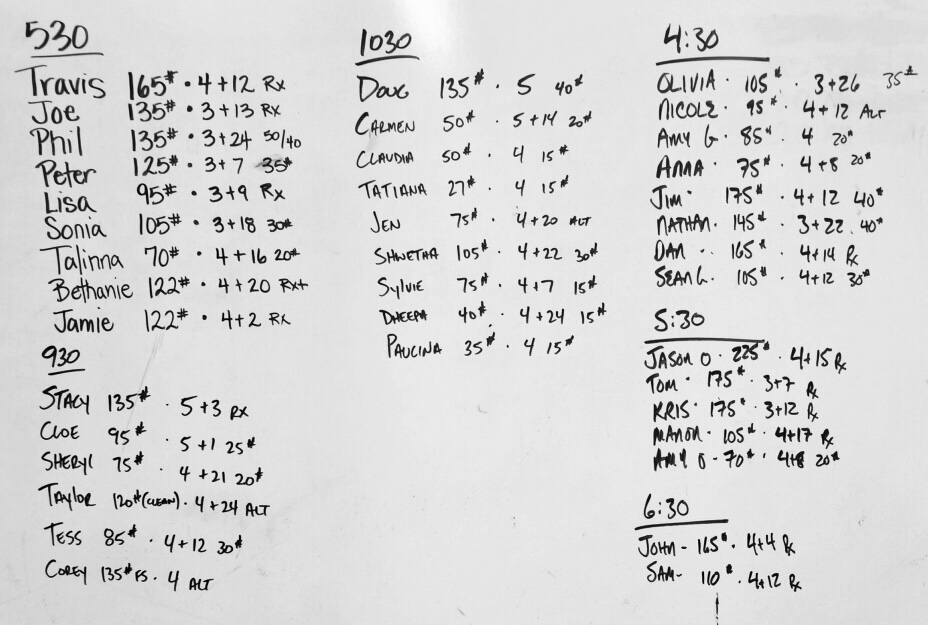 530
Travis 165# • 4+12 Rx
Joe 135# • 3+13 Rx
Phil 135# • 3+24 50/40
Peter 125# • 3+7 35#
Lisa 95# • 3+9 Rx
Sonia 105# • 3+18 30#
Talinna 70# • 4+16 20#
Bethanie 122# • 4+20 Rx+
Jamie 122# • 4+2 Rx
930
STACY 135# . 5+3 Rx
CLOE 95# . 5+1 25#
SHERYL 75# . 4+21 20#
TAYLOR 120#(CLEAN) . 4+24 ALT
TESS 85# . 4+12 30#
COREY 135# FS . 4 ALT
1030
DOUG 135# . 5 40#
CARMEN 50# . 5+14 20#
CLAUDIA 50# . 4 15#
TATIANA 27# . 4 15#
JEN 75# . 4+20 ALT
SHWETHA 105# . 4+22 30#
SYLVIE 75# . 4+7 15#
DHEEPA 40# . 4+24 15#
PAULINA 35# . 4 15#
4:30
OLIVIA . 105# . 3+26 35#
NICOLE . 95# . 4+12 ALT
AMY G . 85# . 4 20#
ANNA . 75# . 4+8 20#
JIM . 175# . 4+12 40#
NATHAN . 145# . 3+22 . 40#
DAN . . 165# . 4+14 Rx
SEAN L . 105# . 4+12 30#
5:30
JASON O . 225# . 4+15 Rx
TOM . 175# . 3+7 Rx
KRIS . 175# . 3+12 Rx
MANON . 105# . 4+17 Rx
AMY O - 70# . 4+8 20#
6:30
JOHN - 165# . 4+4 Rx
SAM - 110# . 4+12 Rx